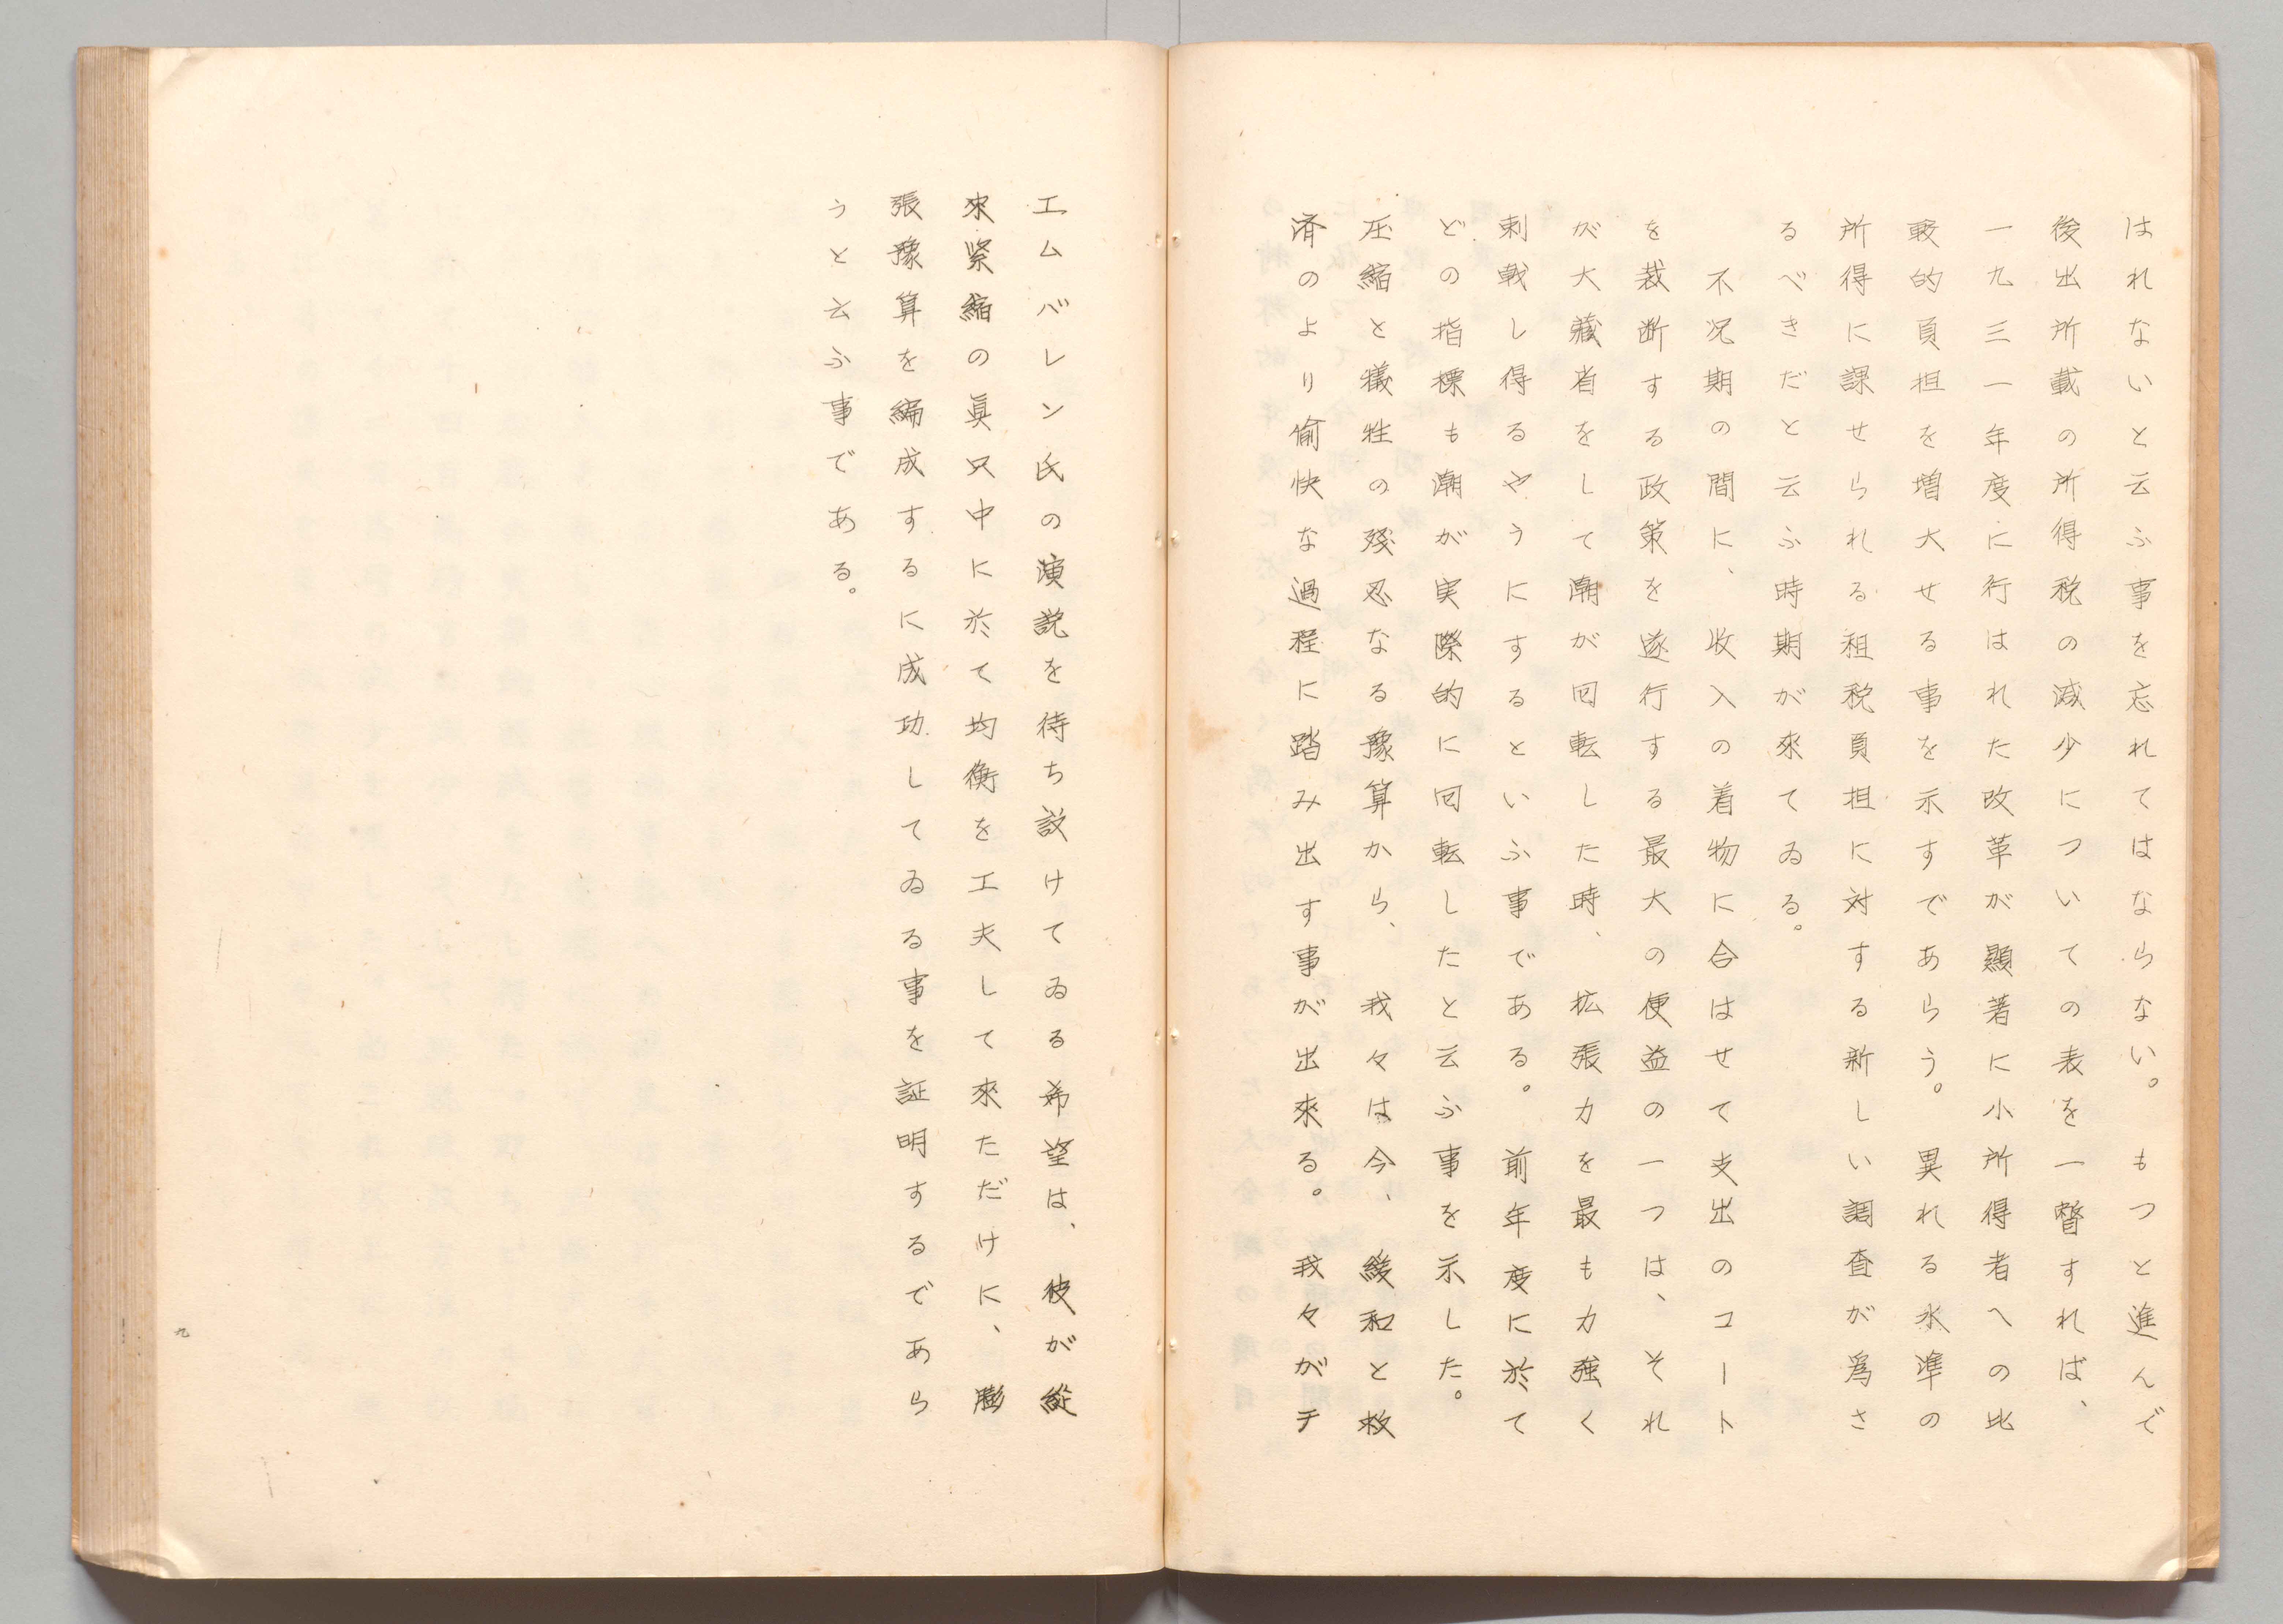 はれないと云ふ事を忘れてはならない。もつと進んで
後出所載の所得税の減少についての表を一瞥すれば、
一九三一年度に行はれた改革が顯著に小所得者への比
較的負担を増大せる事を示すであらう。異れる水準の
所得に課せられる租税負担に対する新しい調査が爲さ
るべきだと云ふ時期が來てゐる。
不況期の間に、収入の着物に合はせて支出のコート
を裁断する政策を遂行する最大の便益の一つは、それ
が大藏省をして潮が回転した時、拡張力を最も力強く
刺戟し得るやうにするといふ事である。前年度に於て
どの指標も潮が実際的に回転したと云ふ事を示した。
圧縮と犠牲の殘忍なる豫算から、我々は今、緩和と救
済のより愉快な過程に踏み出す事が出來る。我々がチ
エムバレン氏の演説を待ち設けてゐる希望は、彼が縦
來緊縮の眞只中に於て均衡を工夫して來ただけに、膨
張豫算を編成するに成功してゐる事を証明するであら
うと云ふ事である。
九